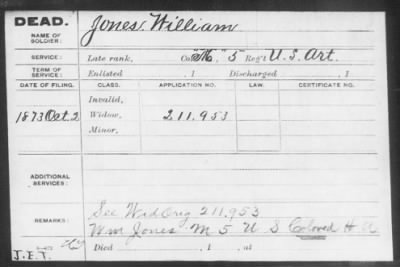 DEAD.
NAME OF SOLDIER: Jones, William
SERVICE: Late rank, Co. "M," 5 Reg't U.S. Art.
TERM OF SERVICE: Enlisted , 1 Discharged , 1
DATE OF FILING. CLASS. APPLICATION NO. LAW. CERTIFICATE NO.
Invalid,
1873 Oct. 2 Widow, 211.953
Minor,
ADDITIONAL SERVICES:
See Wid Orig 211.953
REMARKS: Wm Jones M 5 U S Colored H A
Died , 1 , at